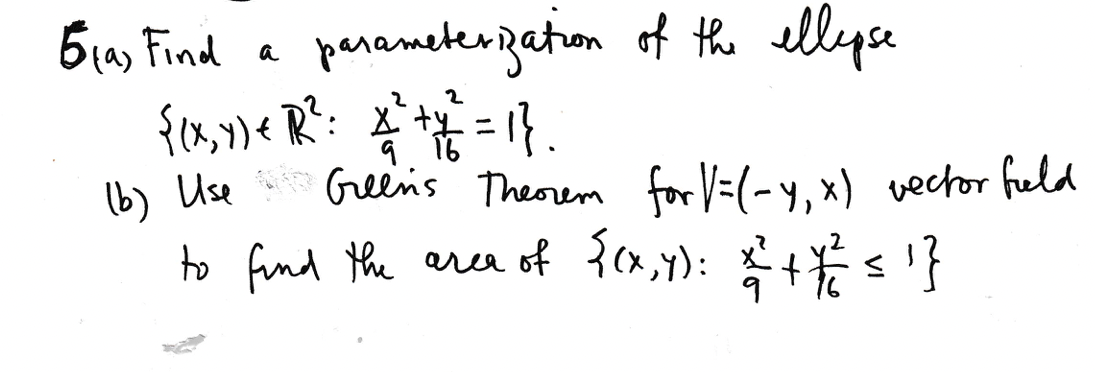 5(a) Find a parameterization of the ellipse
{(x,y) ∈ ℝ²: x²/9 + y²/16 = 1}.
(b) Use Green's Theorem for V=(-y, x) vector field
to find the area of {(x,y): x²/9 + y²/16 ≤ 1}